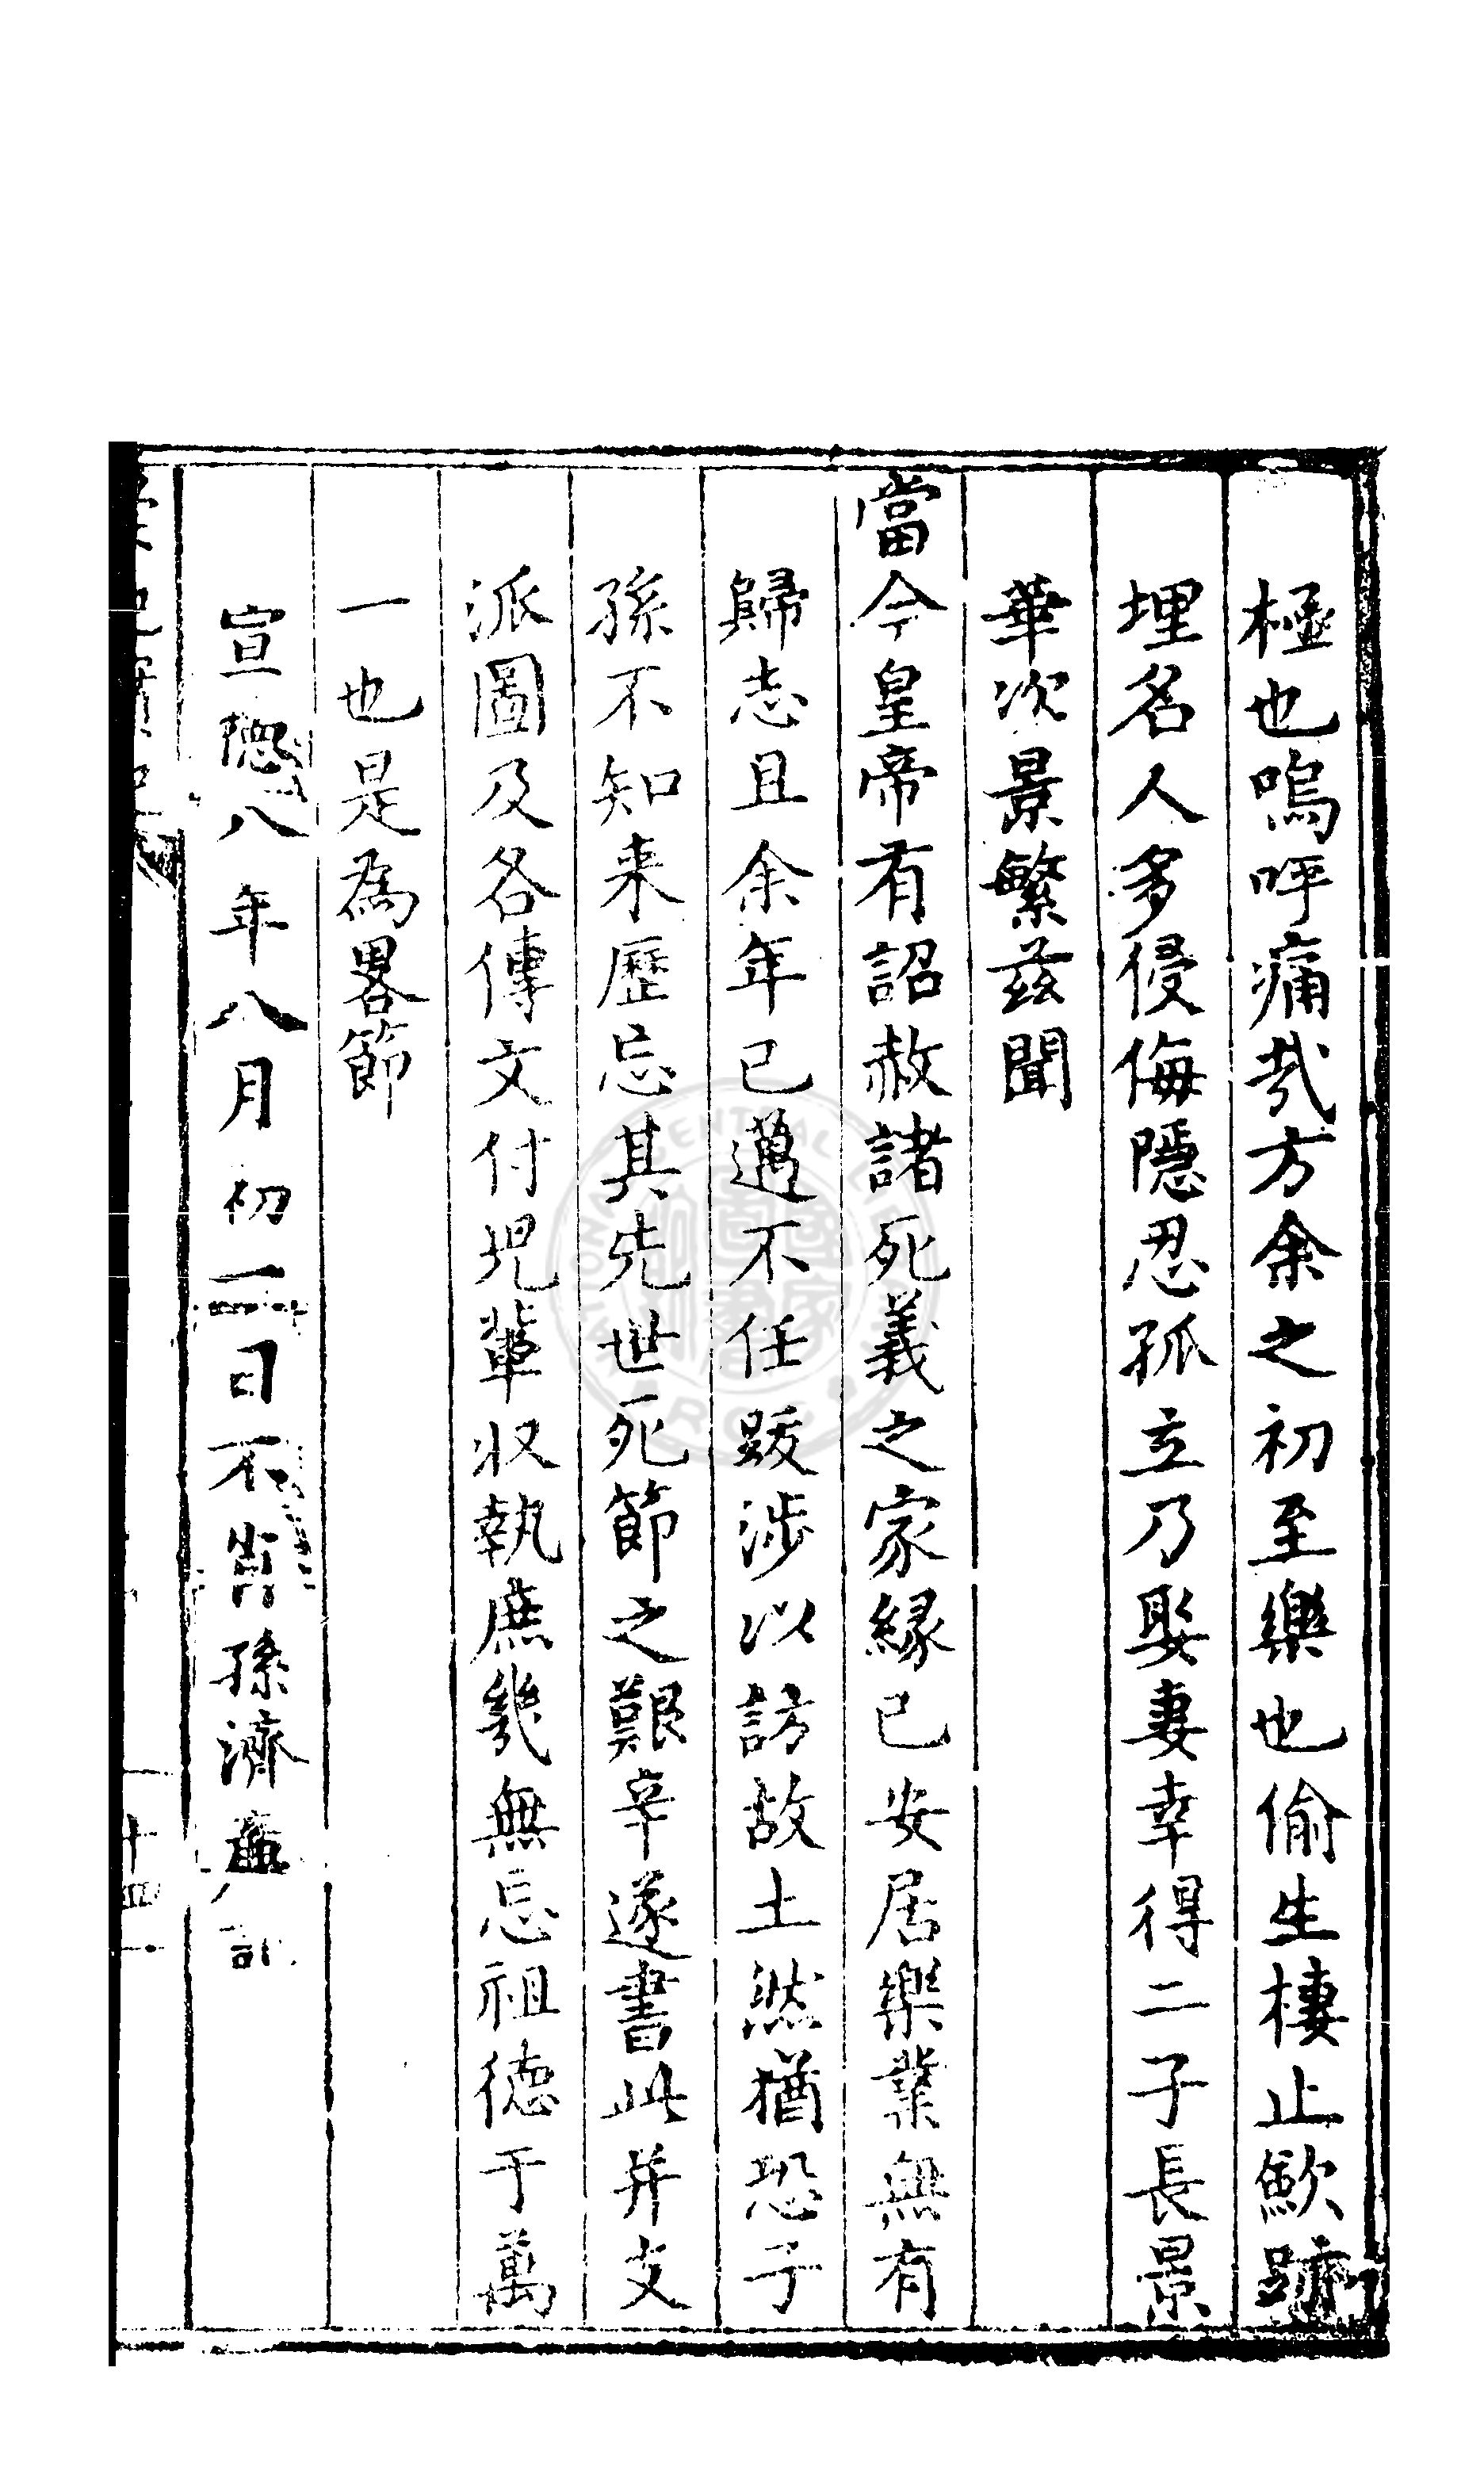 極也嗚呼痛哉方余之初至樂也偷生棲止歛跡
埋名人多侵侮隱忍孤立乃娶妻幸得二子長景
華次景繁兹聞
當今皇帝有詔赦諸死義之家緣已安居樂業無有
歸志且余年已邁不任跋涉以訪故土然猶恐子
孫不知来歷忘其先世死節之艱辛遂書此并支
派圖及各傳文付兒輩収執庶幾無忘祖德于萬
一也是為畧節
宣德八年八月初一日不肖孫濟
十四